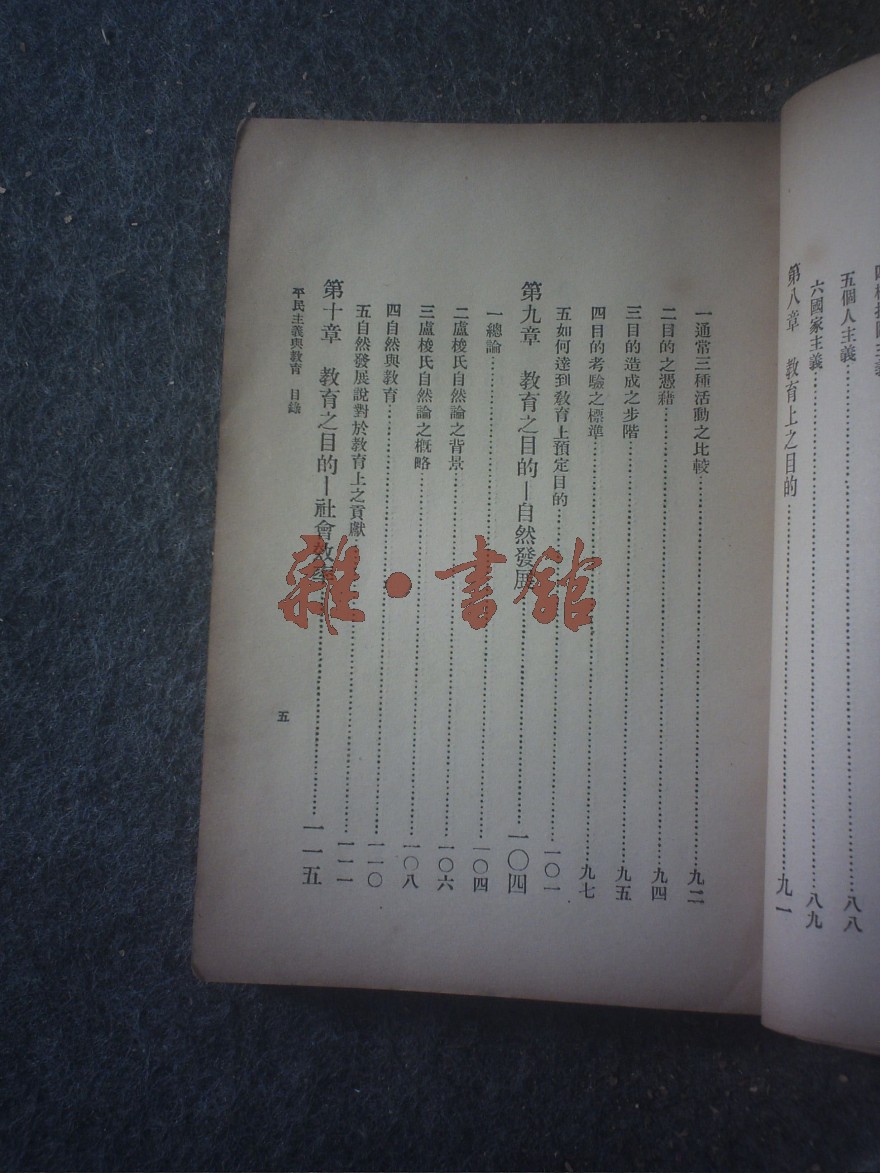 五個人主義……八八
六國家主義……八九
第八章 教育上之目的……九一
一通常三種活動之比較……九二
二目的之憑藉……九四
三目的造成之步階……九五
四目的考驗之標準……九七
五如何達到教育上預定目的……一〇一
第九章 教育之目的—自然發展……一〇四
一總論……一〇四
二盧梭氏自然論之背景……一〇六
三盧梭氏自然論之概略……一〇八
四自然與教育……一一〇
五自然發展說對於教育上之貢獻……一一一
第十章 教育之目的—社會效率……一一五
平民主義與教育 目錄
五
雜·書館